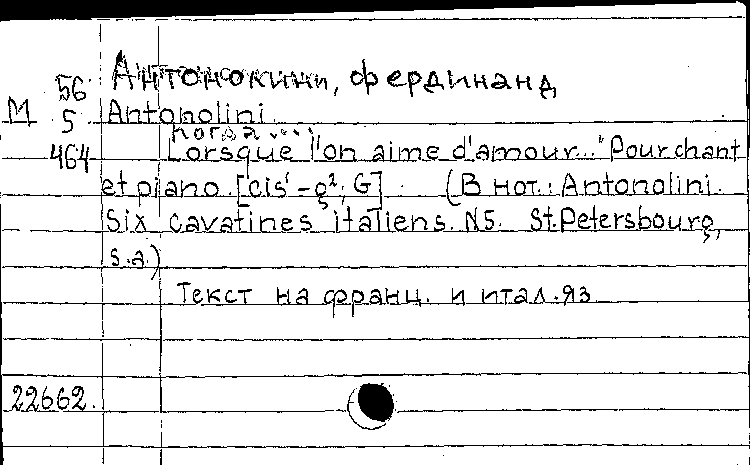 56 Антонокини, Фердинанд
М 5 Antonolini.
Когда...
464 Lorsque l'on aime d'amour..." Pour chant
et piano. [cis¹-g²; G]. (В нот.: Antonolini.
Six cavatines italiens. N5. St.Petersbourg,
s.a.)
Текст на франц. и итал.яз
22662.